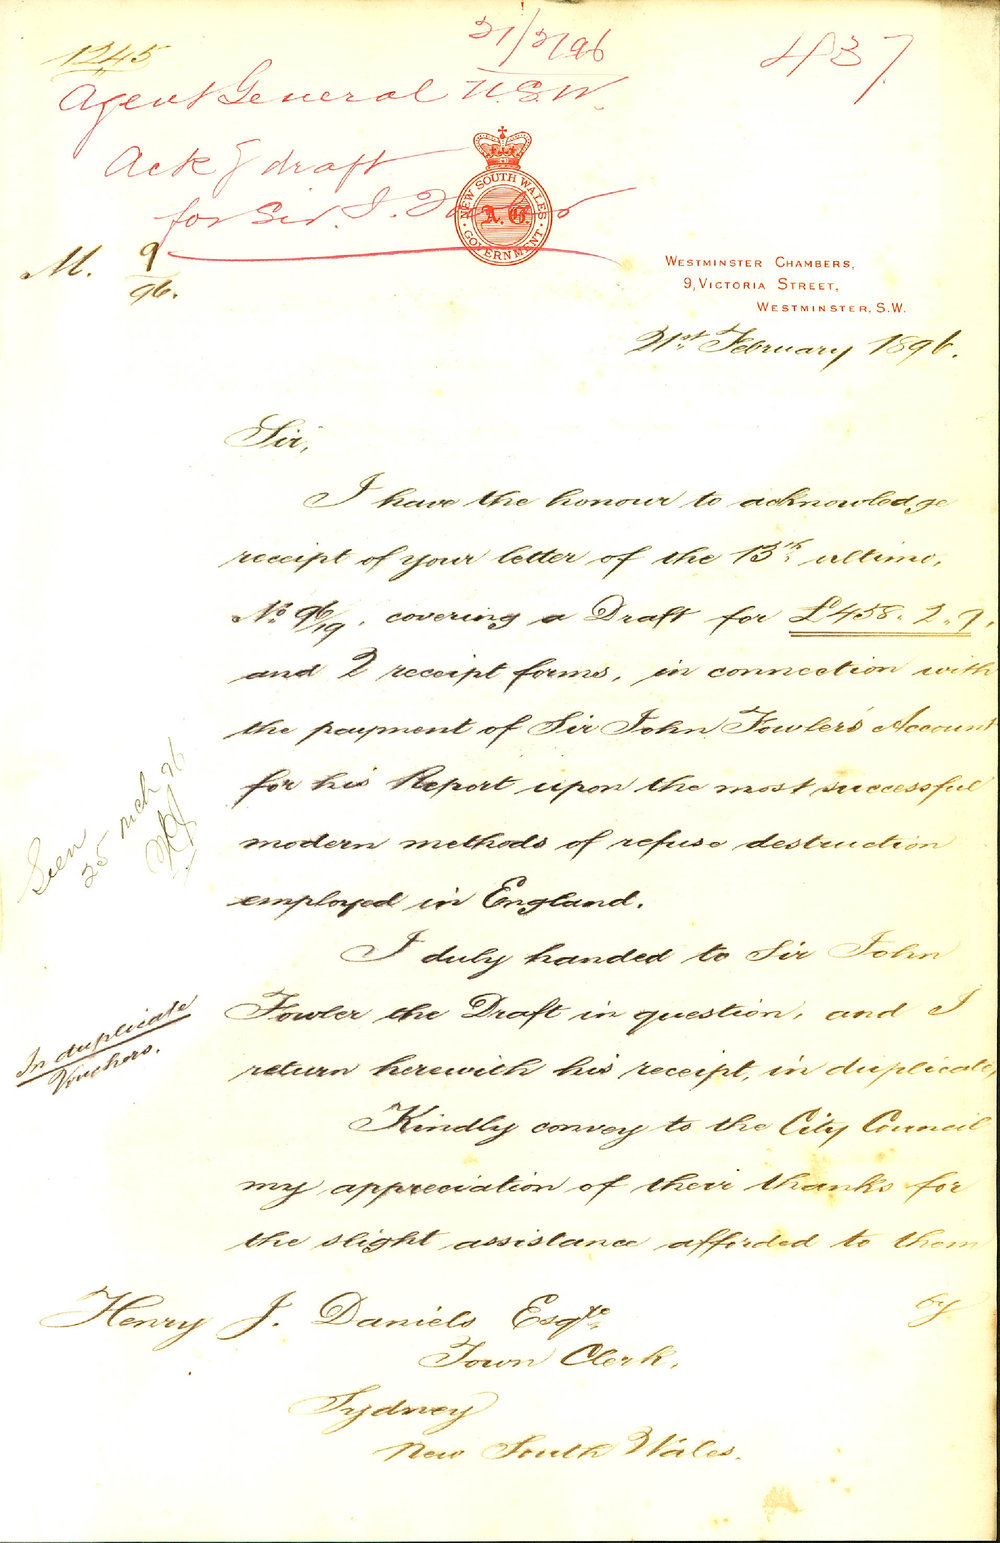 1245
21/2/96
437
Agent General N.S.W.
Ack g draft
for Sir J. Fowler
NEW SOUTH WALES
A.G.
GOVERNMENT
M. 9/96.
WESTMINSTER CHAMBERS,
9, VICTORIA STREET,
WESTMINSTER, S.W.
21st February 1896.
Sir,
I have the honour to acknowledge
receipt of your letter of the 13th ultimo,
No 96/19, covering a Draft for £458. 2. 9,
and 2 receipt forms, in connection with
the payment of Sir John Fowler's Account
for his Report upon the most successful
modern methods of refuse destruction
employed in England.
Seen
25 Mch 96
I duly handed to Sir John
Fowler the Draft in question, and I
return herewith his receipt, in duplicate,
In duplicate
Vouchers.
Kindly convey to the City Council
my appreciation of their thanks for
the slight assistance afforded to them
by
Henry J. Daniels Esqre
Town Clerk,
Sydney
New South Wales.